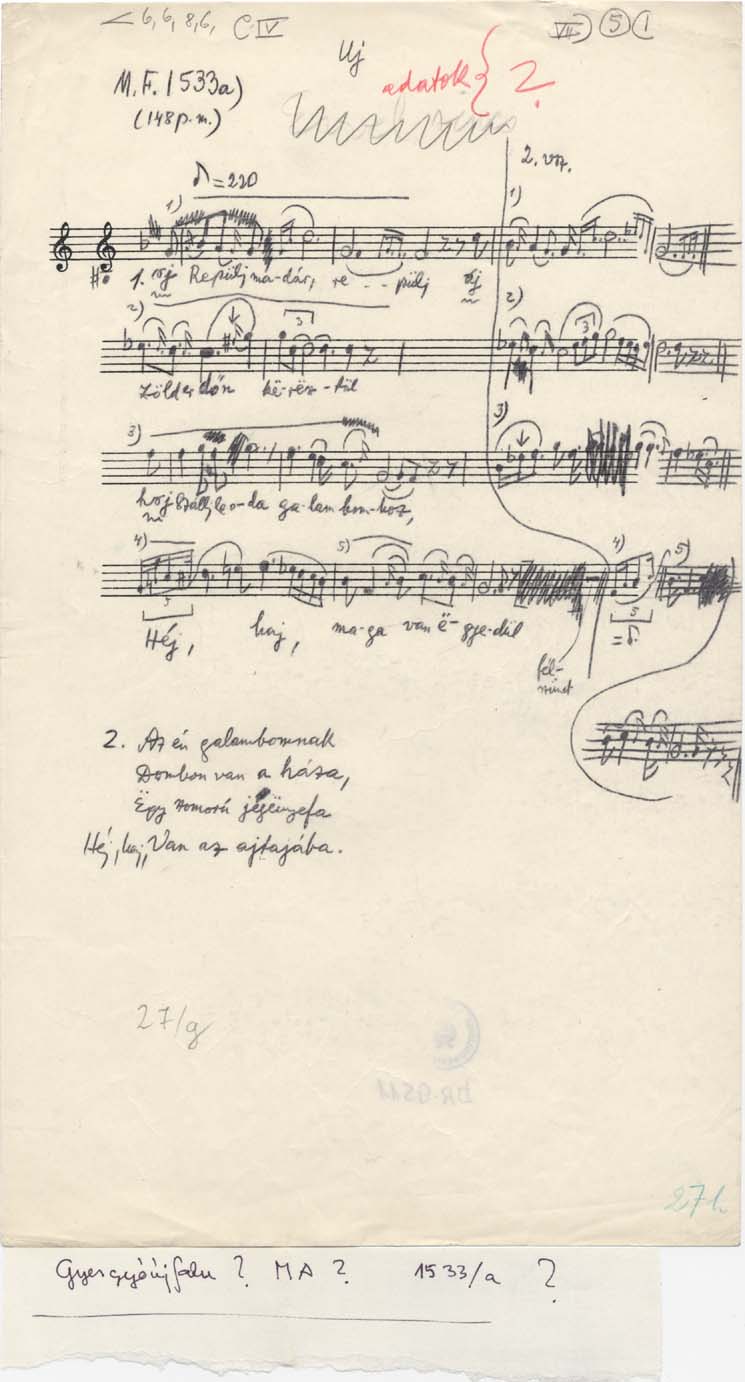 < 6, 6, 8, 6, C IV
VII) 5 1
Uj
adatok } ?
M.F. 1533a)
(148 p.m.)
2. vsz.
♪=220
1)
1)
1. Repülj madár, re - - pülj
2)
2)
3
3
Zöld erdőn ké-rész-tül
3)
3)
ga-lam-bom-hoz,
4)
5)
4)
5)
5
5
Héj, haj, ma-ga van ë-gye-dül
=
fél-
szünet
2. Az én galambomnak
Dombon van a háza,
Ëgy szomorú jegënyefa
Héj, haj, Van az ajtajába.
27/g
DR-0511
27h
Gyergyóújfalu ? MA ? 1533/a ?